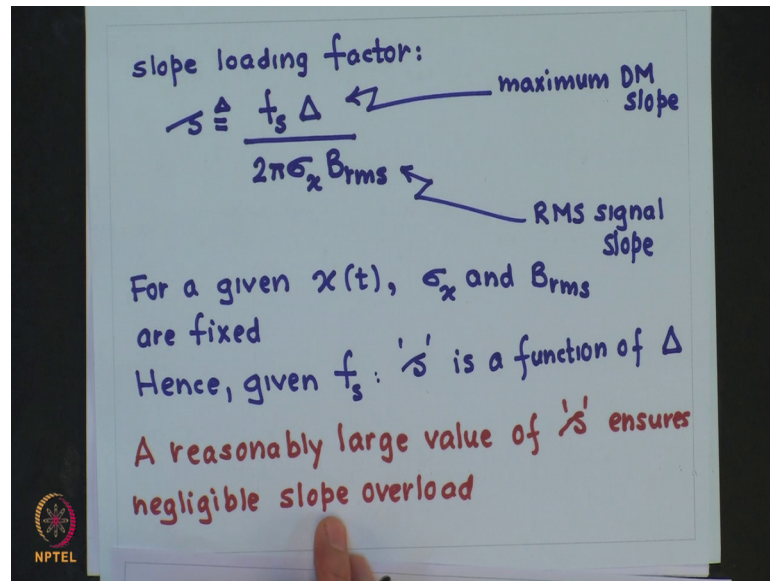 slope loading factor:
s ≜ fs Δ / 2πσx Brms
maximum DM
slope
RMS signal
slope
For a given x(t), σx and Brms
are fixed
Hence, given fs : 's' is a function of Δ
A reasonably large value of 's' ensures
negligible slope overload
NPTEL